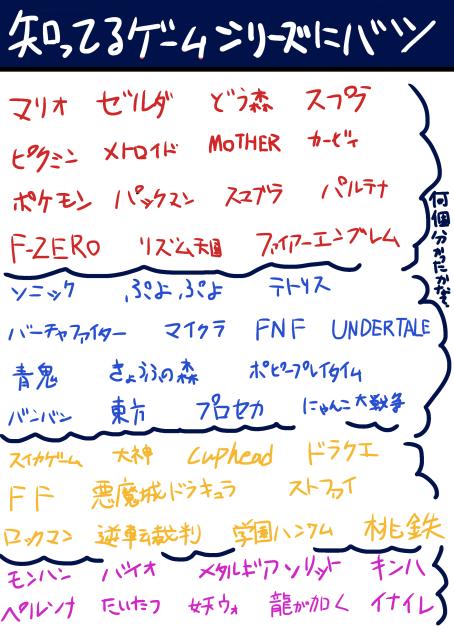 知ってるゲームシリーズにバツ
マリオ ゼルダ どう森 スプラ
ピクミン メトロイド MOTHER カービィ
ポケモン パックマン スマブラ パルテナ
F-ZERO リズム天国 ファイアーエンブレム
何個分かったかな?
ソニック ぷよぷよ テトリス
バーチャファイター マイクラ FNF UNDERTALE
青鬼 きょうふの森 ポピープレイタイム
バンバン 東方 プロセカ にゃんこ大戦争
スイカゲーム 大神 cuphead ドラクエ
FF 悪魔城ドラキュラ ストファイ
ロックマン 逆転裁判 学園ハンサム 桃鉄
モンハン バイオ メタルギアソリット キンハ
ペルソナ たいたつ 妖ウォ 龍が如く イナイレ